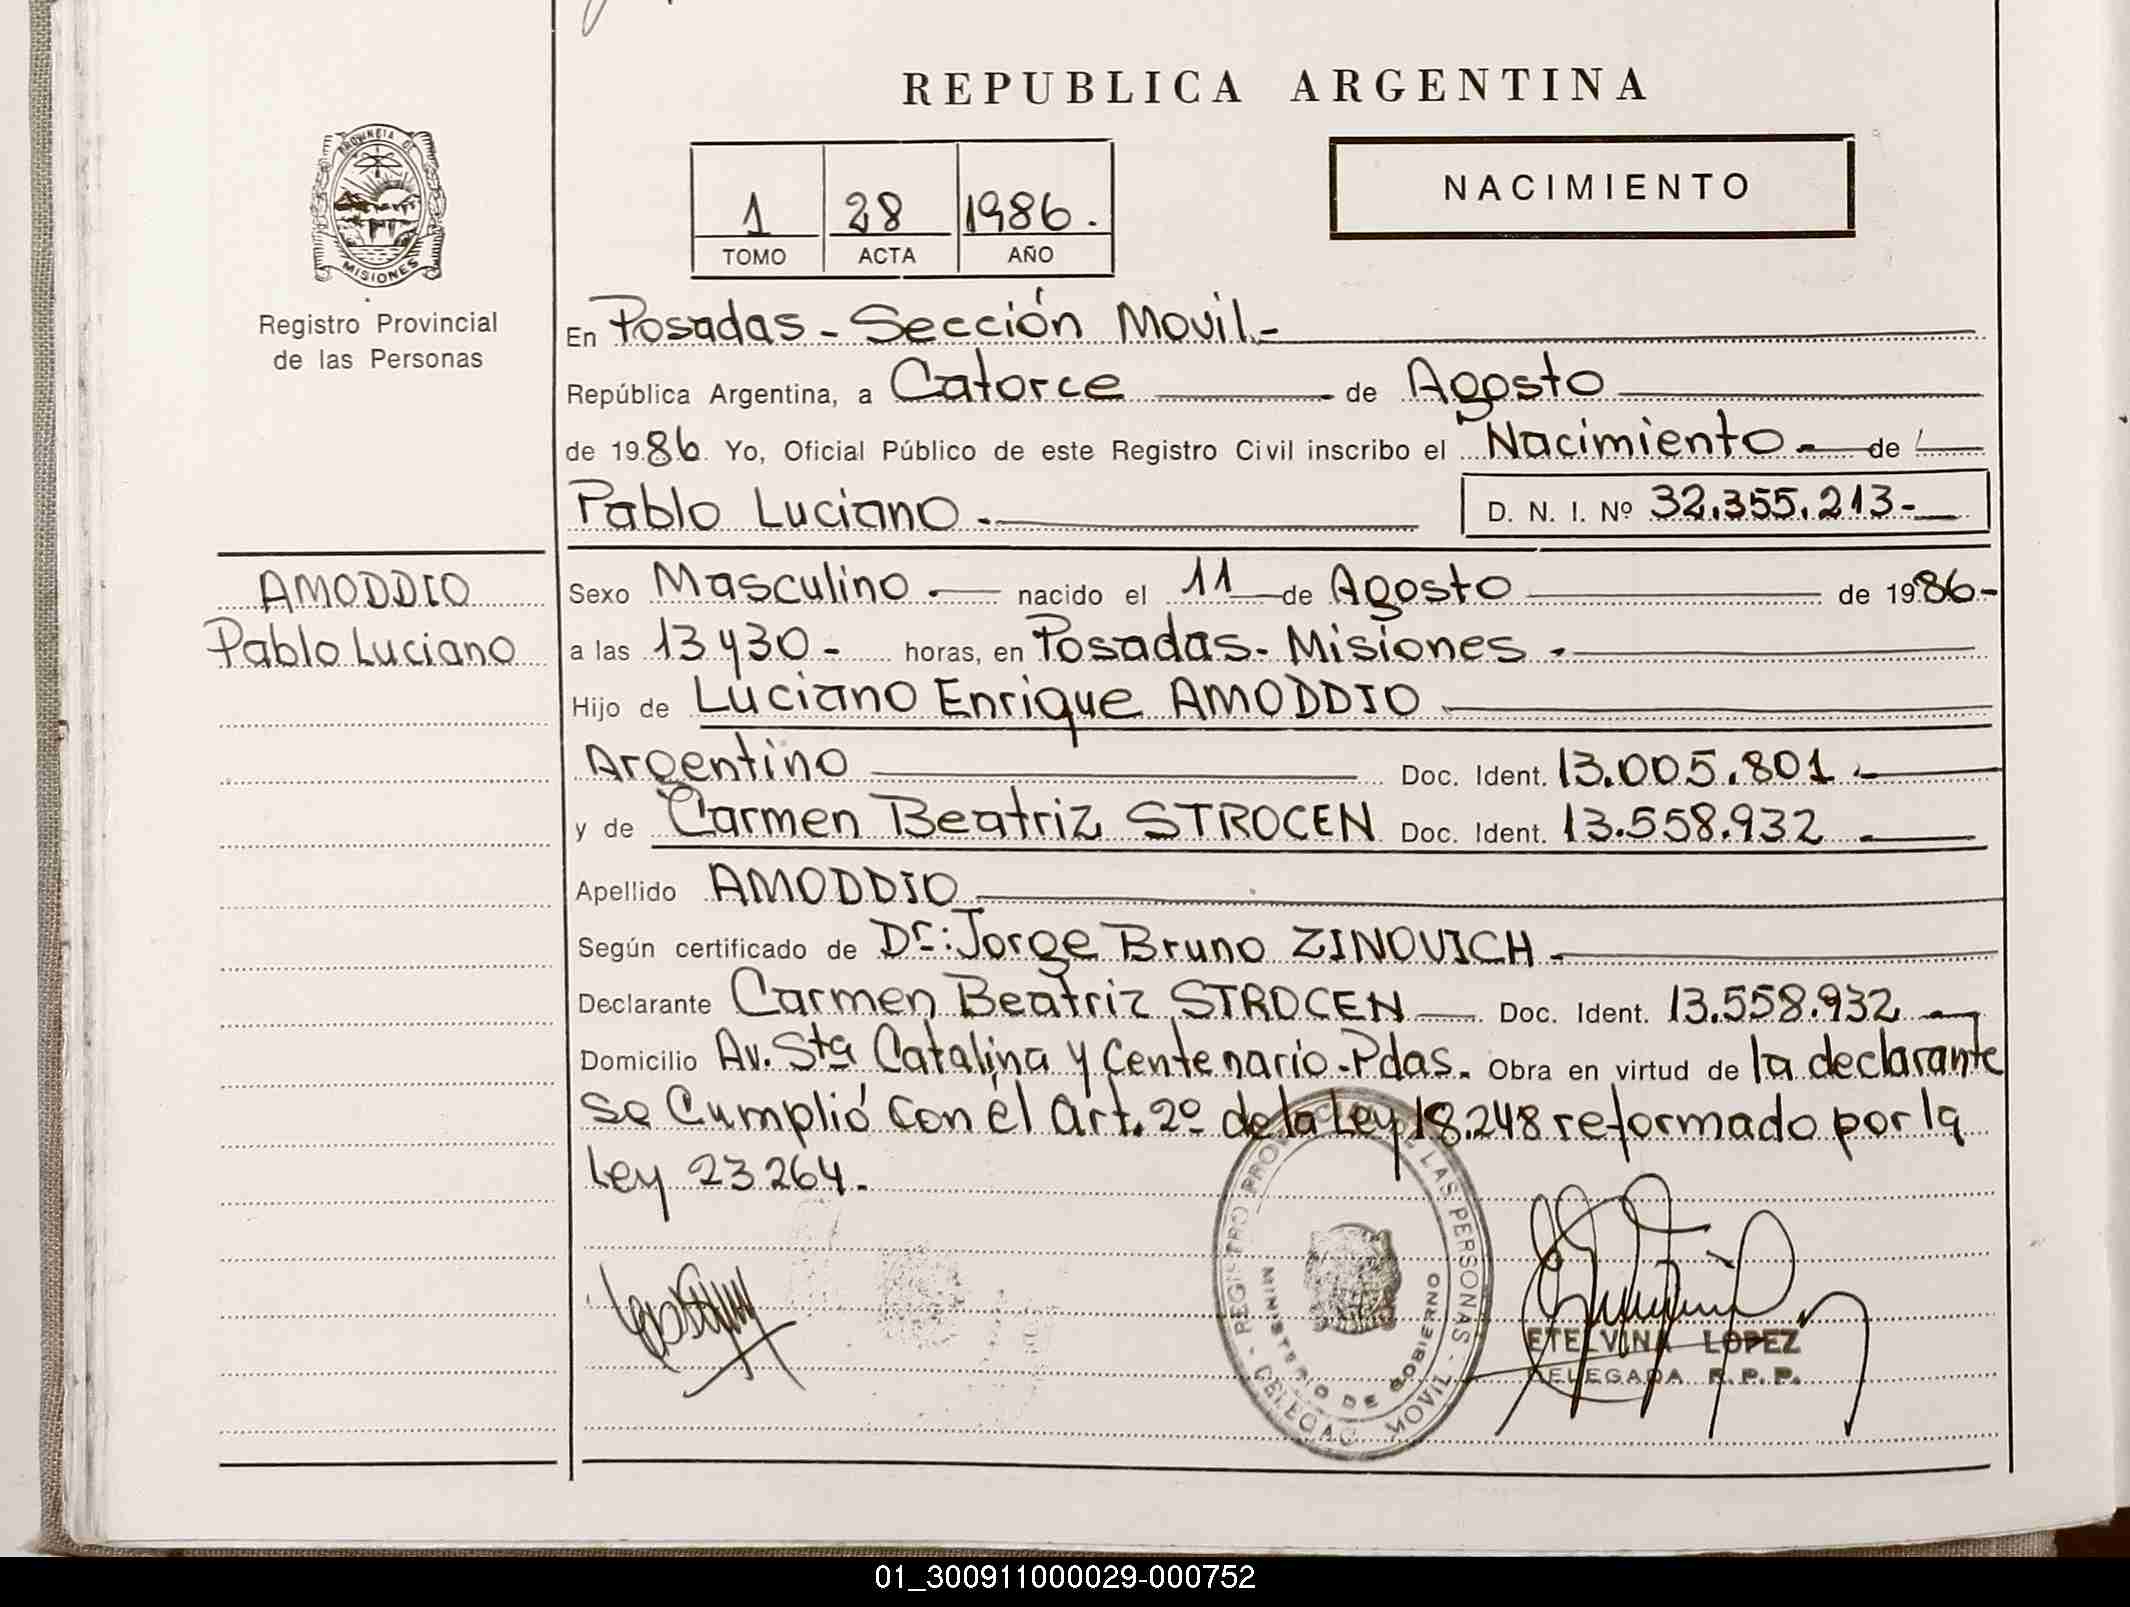 REPUBLICA ARGENTINA
PROVINCIA DE MISIONES
Registro Provincial
de las Personas
1 28 1986.
TOMO ACTA AÑO
NACIMIENTO
En Posadas - Sección Movil.-
República Argentina, a Catorce de Agosto
de 1986. Yo, Oficial Público de este Registro Civil inscribo el Nacimiento.- de
Pablo Luciano.- D. N. I. Nº 32.355.213-
AMODDIO
Pablo Luciano
Sexo Masculino.- nacido el 11 de Agosto de 1986-
a las 13 y 30 - horas, en Posadas - Misiones.-
Hijo de Luciano Enrique AMODDIO
Argentino Doc. Ident. 13.005.801.-
y de Carmen Beatriz STROCEN Doc. Ident. 13.558.932.-
Apellido AMODDIO
Según certificado de Dr: Jorge Bruno ZINOVICH.-
Declarante Carmen Beatriz STROCEN Doc. Ident. 13.558.932.-
Domicilio Av. Sta Catalina y Centenario-Pdas. Obra en virtud de la declarante
se Cumplió con el art. 2º de la Ley 18.248 reformado por la
Ley 23.264.
REGISTRO PROVINCIAL DE LAS PERSONAS
MINISTERIO DE GOBIERNO
MOVIL
ETELVINA LOPEZ
DELEGADA R.P.P.
01_300911000029-000752